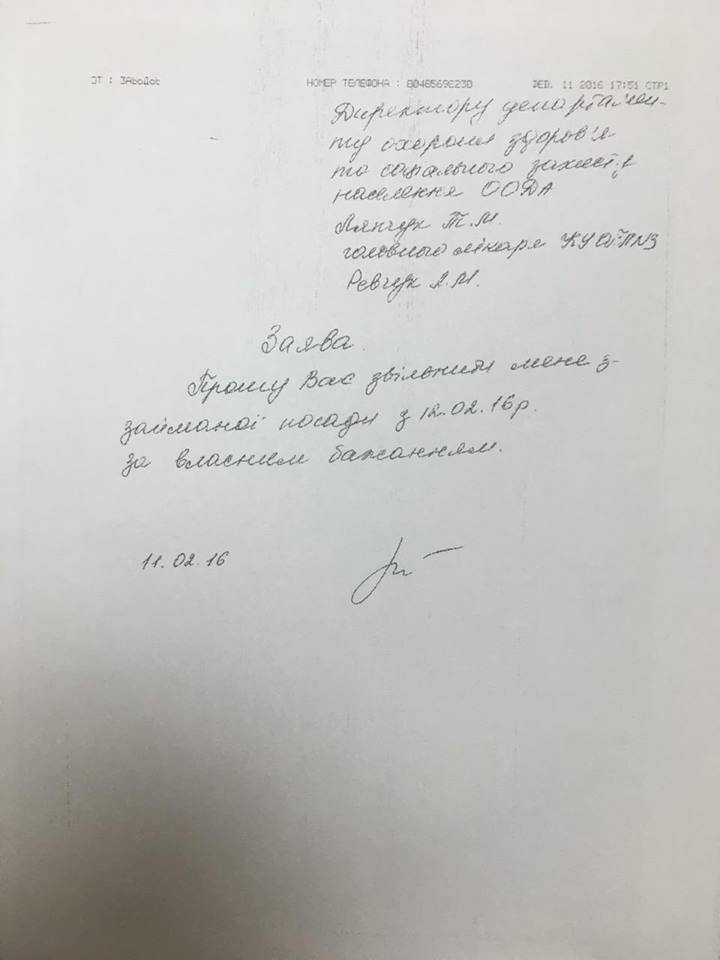 НОМЕР ТЕЛЕФОНА : 80485696230 ФЕВ. 11 2016 17:51 СТР1
Директору департамен-
ту охорони здоров'я
та соціального захисту
населення ООДА
Лянчук Т.М.
головного лікаря
Ревчук Л.М.
Заява.
Прошу Вас звільнити мене з
займаної посади з 12.02.16р.
за власним бажанням.
11.02.16